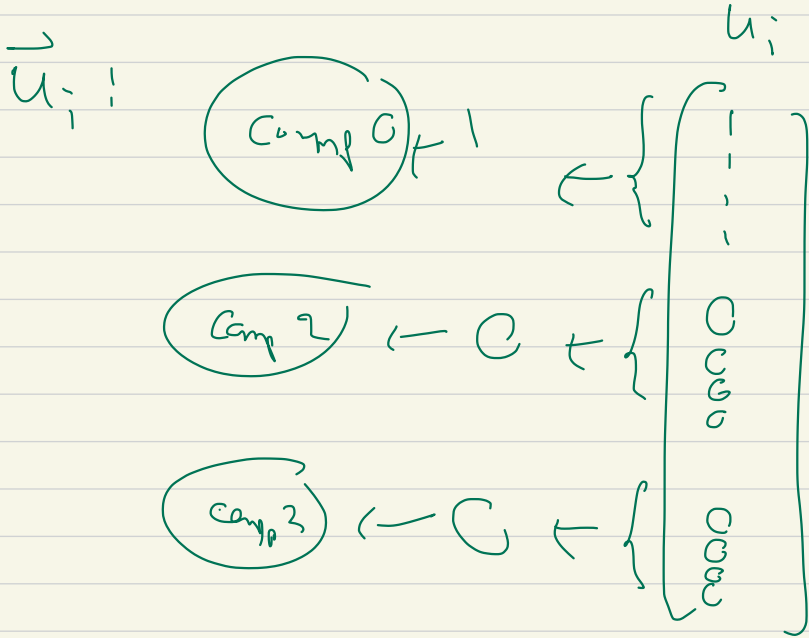 u⃗ᵢ :
uᵢ
Comp 0 ← 1 ←
1
1
1
1
Comp 2 ← 0 ←
0
0
0
0
Comp 3 ← 0 ←
0
0
0
0